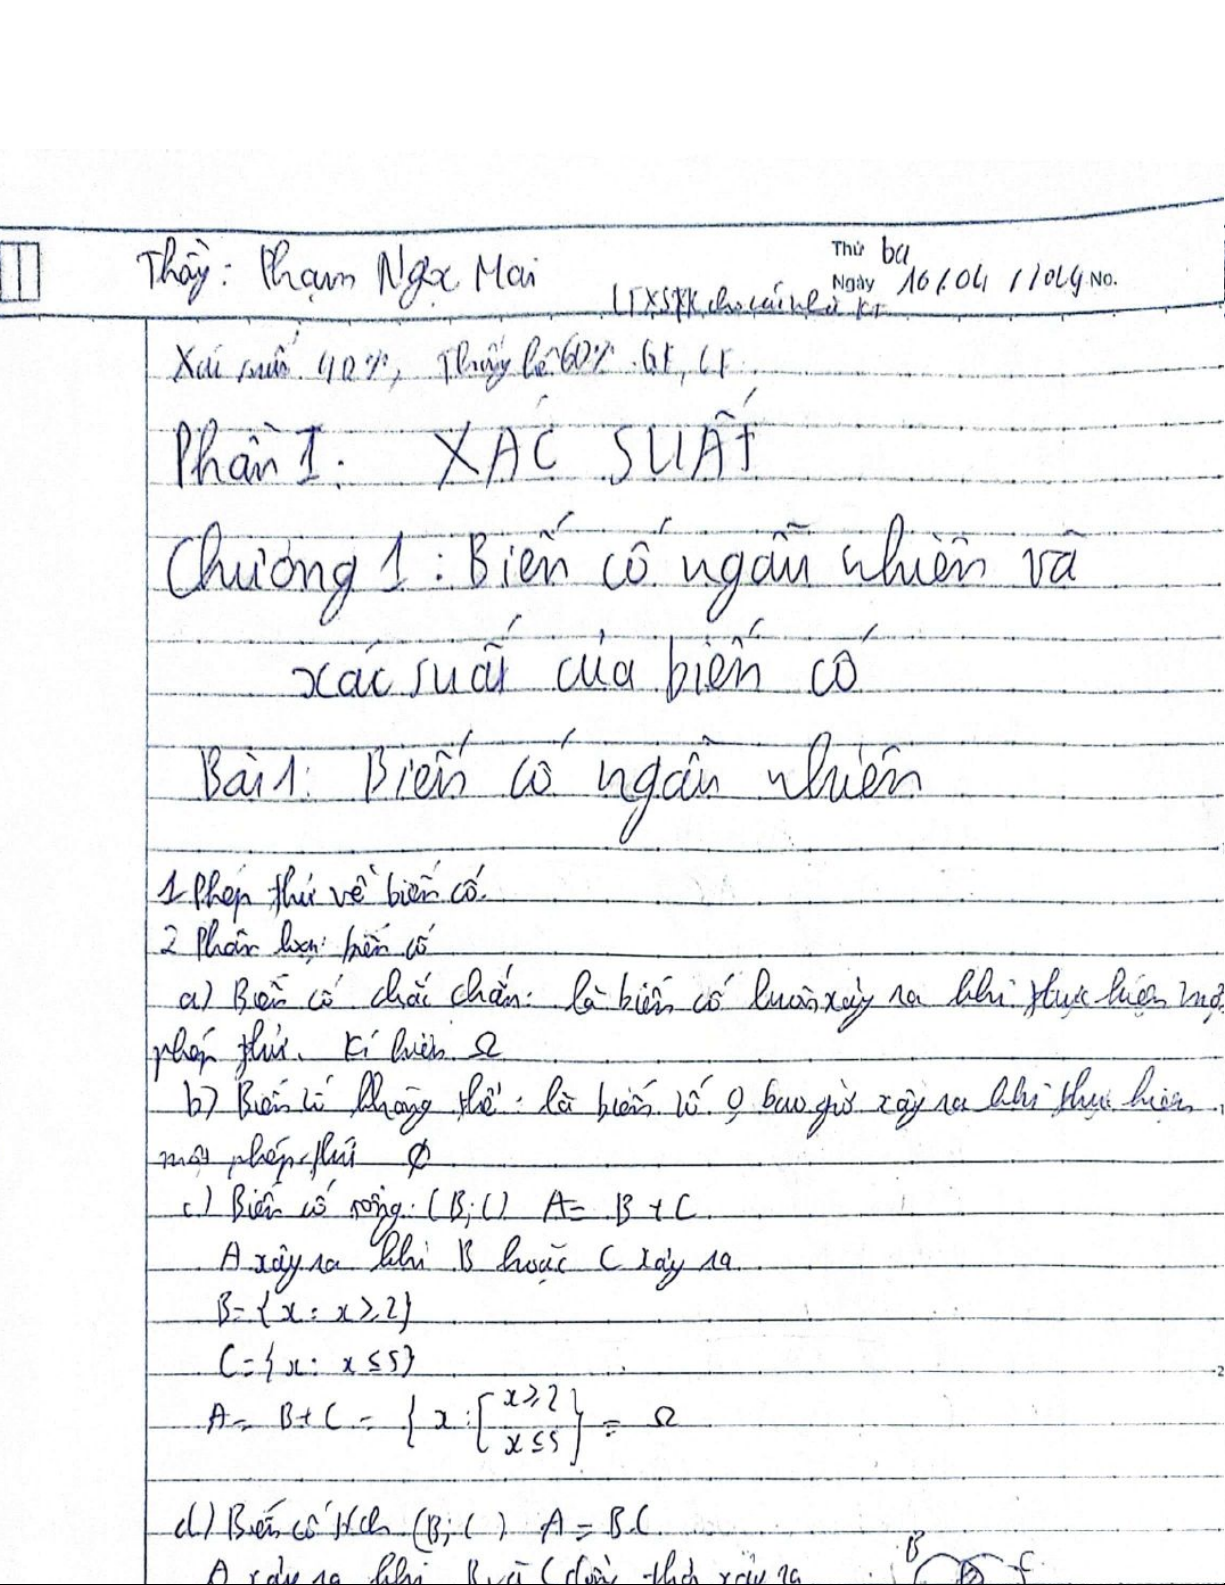 Thầy: Phạm Ngọc Mai
Thứ ba
Ngày 16/04 No.
LTXSTK cho cái nhà KT
Xác suất 40%, Thống kê 60% GK, CK
Phần 1: XÁC SUẤT
Chương 1: Biến cố ngẫu nhiên và
xác suất của biến cố
Bài 1: Biến cố ngẫu nhiên
1 Phép thử về biến cố.
2 Phân loại biến cố
a) Biến cố chắc chắn: là biến cố luôn xảy ra khi thực hiện một
phép thử. Kí hiệu Ω
b) Biến cố không thể: là biến cố 0 bao giờ xảy ra khi thực hiện
một phép thử ∅
c) Biến cố tổng: (B; C) A = B + C
A xảy ra khi B hoặc C xảy ra
B = {x: x ≥ 2}
C = {x: x ≤ 5}
A = B + C = {x: [x ≥ 2 x ≤ 5} = Ω
d) Biến cố tích (B; C) A = B.C
A xảy ra khi B và C đồng thời xảy ra
B C